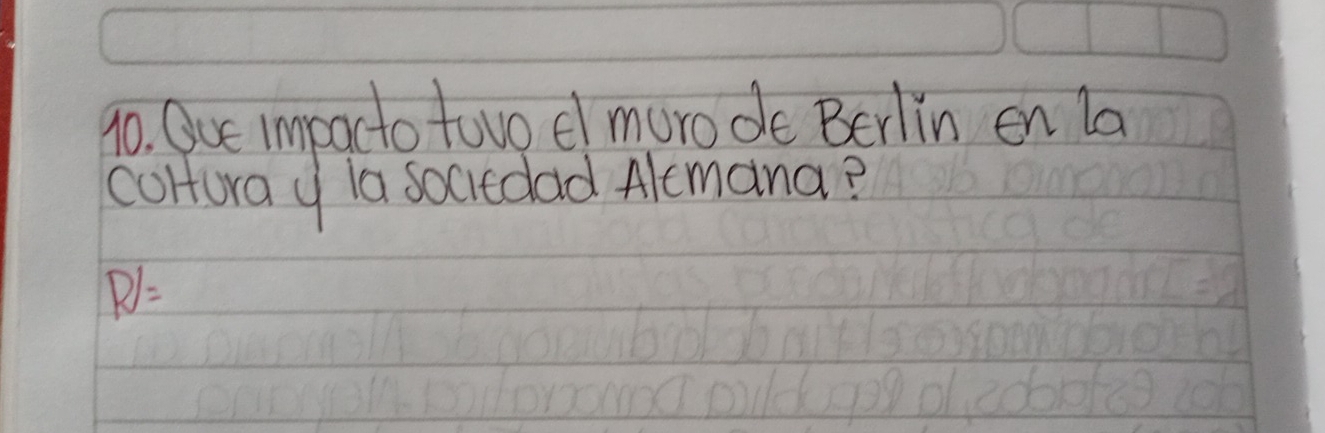 10. Que impacto tuvo el muro de Berlin en la
cultura y la sociedad Alemana?
R/=